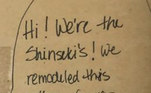 Hi! We're the
Shinseki's! We
remodeled this